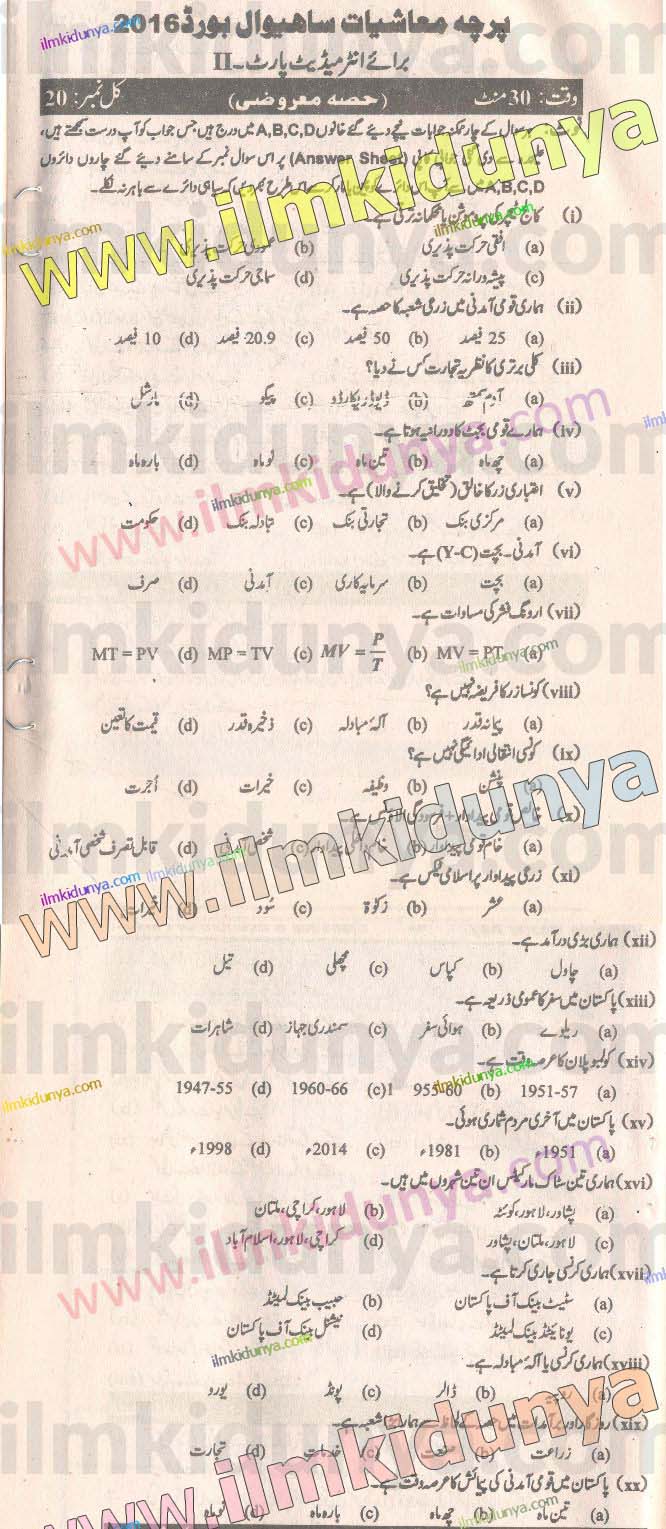 پرچہ معاشیات ساہیوال بورڈ 2016
برائے انٹرمیڈیٹ پارٹ۔ II
وقت: 30 منٹ (حصہ معروضی) کل نمبر: 20
نوٹ: ہر سوال کے چار ممکنہ جوابات نیچے دیئے گئے خانوں A,B,C,D میں درج ہیں، جس جواب کو آپ درست سمجھتے ہیں،
علیحدہ سے دی گئی جوابی کاپی (Answer Sheet) پر اس سوال نمبر کے سامنے دیئے گئے چاروں دائروں
A,B,C,D میں سے اس دائرے کو اس طرح بھریں کہ سیاہی دائرے سے باہر نہ نکلے۔
(i) کالج ٹیچر کی پروموشن یا محکمانہ ترقی ہے۔
(a) افقی حرکت پذیری (b) عمودی حرکت پذیری
(c) پیشہ ورانہ حرکت پذیری (d) سماجی حرکت پذیری
(ii) ہماری قومی آمدنی میں زرعی شعبہ کا حصہ ہے۔
(a) 25 فیصد (b) 50 فیصد (c) 20.9 فیصد (d) 10 فیصد
(iii) کلی برتری کا نظریہ تجارت کس نے دیا؟
(a) آدم سمتھ (b) ڈیوڈ ریکارڈو (c) پیگو (d) مارشل
(iv) ہمارے قومی بجٹ کا دورانیہ ہوتا ہے۔
(a) چھ ماہ (b) تین ماہ (c) نو ماہ (d) بارہ ماہ
(v) اعتباری زر کا خالق (تخلیق کرنے والا) ہے۔
(a) مرکزی بنک (b) تجارتی بنک (c) تبادلہ بنک (d) حکومت
(vi) آمدنی۔ بچت (Y-C) ہے۔
(a) بچت (b) سرمایہ کاری (c) آمدنی (d) صرف
(vii) ارونگ فشر کی مساوات ہے۔
(a) MV = PT (b) MV = P/T (c) MP = TV (d) MT = PV
(viii) کونسا زر کا فریضہ نہیں ہے؟
(a) پیمانہ قدر (b) آلۂ مبادلہ (c) ذخیرہ قدر (d) قیمت کا تعین
(ix) کونسی انتقالی ادائیگی نہیں ہے؟
(a) پنشن (b) وظیفہ (c) خیرات (d) اُجرت
(x) خالص قومی پیداوار + فرسودگی الاؤنس ہے۔
(a) خام قومی پیداوار (b) خام داخلی پیداوار (c) شخصی آمدنی (d) قابل تصرف شخصی آمدنی
(xi) زرعی پیداوار پر اسلامی ٹیکس ہے۔
(a) عشر (b) زکوٰۃ (c) سُود (d) خیرات
(xii) ہماری بڑی درآمد ہے۔
(a) چاول (b) کپاس (c) مچھلی (d) تیل
(xiii) پاکستان میں سفر کا عمومی ذریعہ ہے۔
(a) ریلوے (b) ہوائی سفر (c) سمندری جہاز (d) شاہرات
(xiv) کولمبو پلان کا عرصہ وقت ہے۔
(a) 1951-57 (b) 955-60 (c)1 1960-66 (d) 1947-55
(xv) پاکستان میں آخری مردم شماری ہوئی۔
(a) 1951ء (b) 1981ء (c) 2014ء (d) 1998ء
(xvi) ہماری تین سٹاک مارکیٹس ان تین شہروں میں ہیں۔
(a) پشاور، لاہور، کوئٹہ (b) لاہور، کراچی، ملتان
(c) لاہور، ملتان، پشاور (d) کراچی، لاہور، اسلام آباد
(xvii) ہماری کرنسی جاری کرتا ہے۔
(a) سٹیٹ بینک آف پاکستان (b) حبیب بینک لمیٹڈ
(c) یونائیٹڈ بینک لمیٹڈ (d) نیشنل بینک آف پاکستان
(xviii) ہماری کرنسی یا آلہ مبادلہ ہے۔
(a) روپیہ (b) ڈالر (c) پونڈ (d) یورو
(xix) روزگار اور برآمدات میں حصے کے لحاظ سے ہمارا بڑا شعبہ ہے۔
(a) زراعت (b) صنعت (c) خدمات (d) تجارت
(xx) پاکستان میں قومی آمدنی کی پیمائش کا عرصہ وقت ہے۔
(a) تین ماہ (b) چھ ماہ (c) بارہ ماہ (d) نو ماہ
www.ilmkidunya.com
ilmkidunya.com